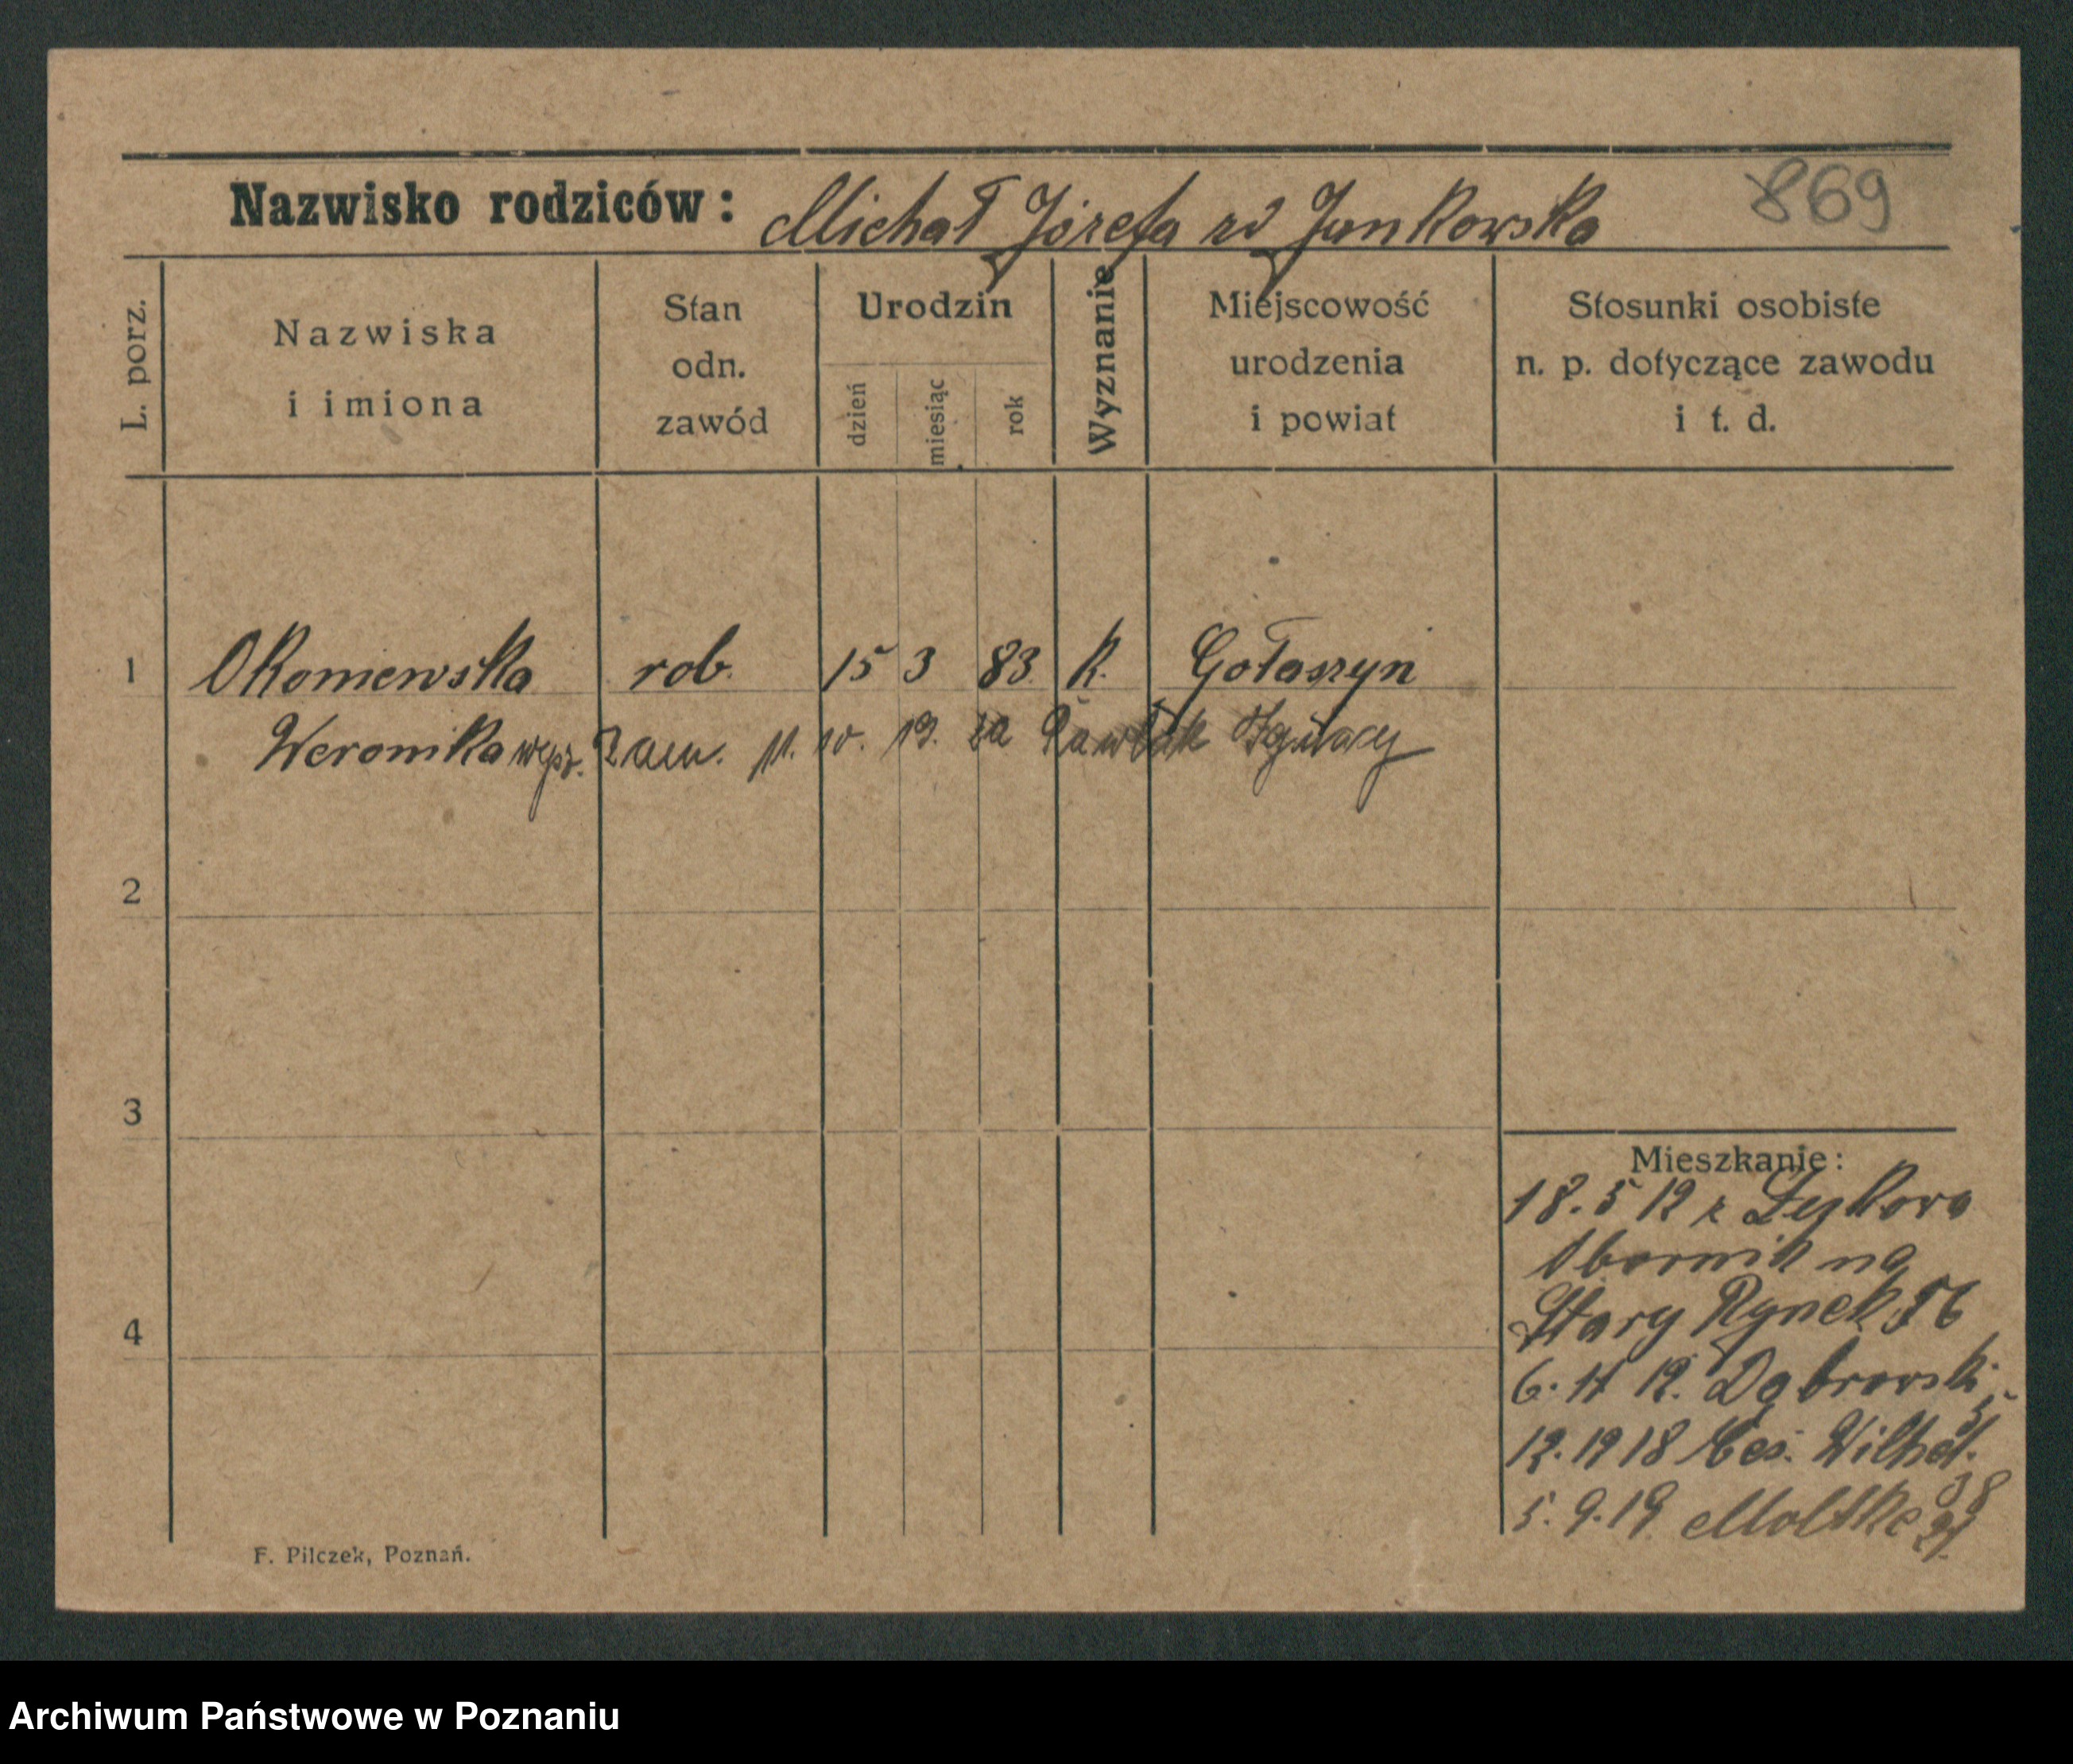 869
Nazwisko rodziców: Michał Józefa zd Jankowska
L. porz.
Nazwiska
i imiona
Stan
odn.
zawód
Urodzin
dzień
miesiąc
rok
Wyznanie
Miejscowość
urodzenia
i powiat
Stosunki osobiste
n. p. dotyczące zawodu
i t. d.
1 Okoniewska rob. 15 3 83 k. Gołaszyn
Weronika zam. 11. 10. 19. za Pawlak Ignacy
2
3
4
Mieszkanie:
18. 5 12 z
Obornik na
Stary Rynek 56
6. 11 12. Dąbrowski
12. 12 18 Ces. Wilhel.
38
5. 9. 19 Moltke 21
F. Pilczek, Poznań.
Archiwum Państwowe w Poznaniu